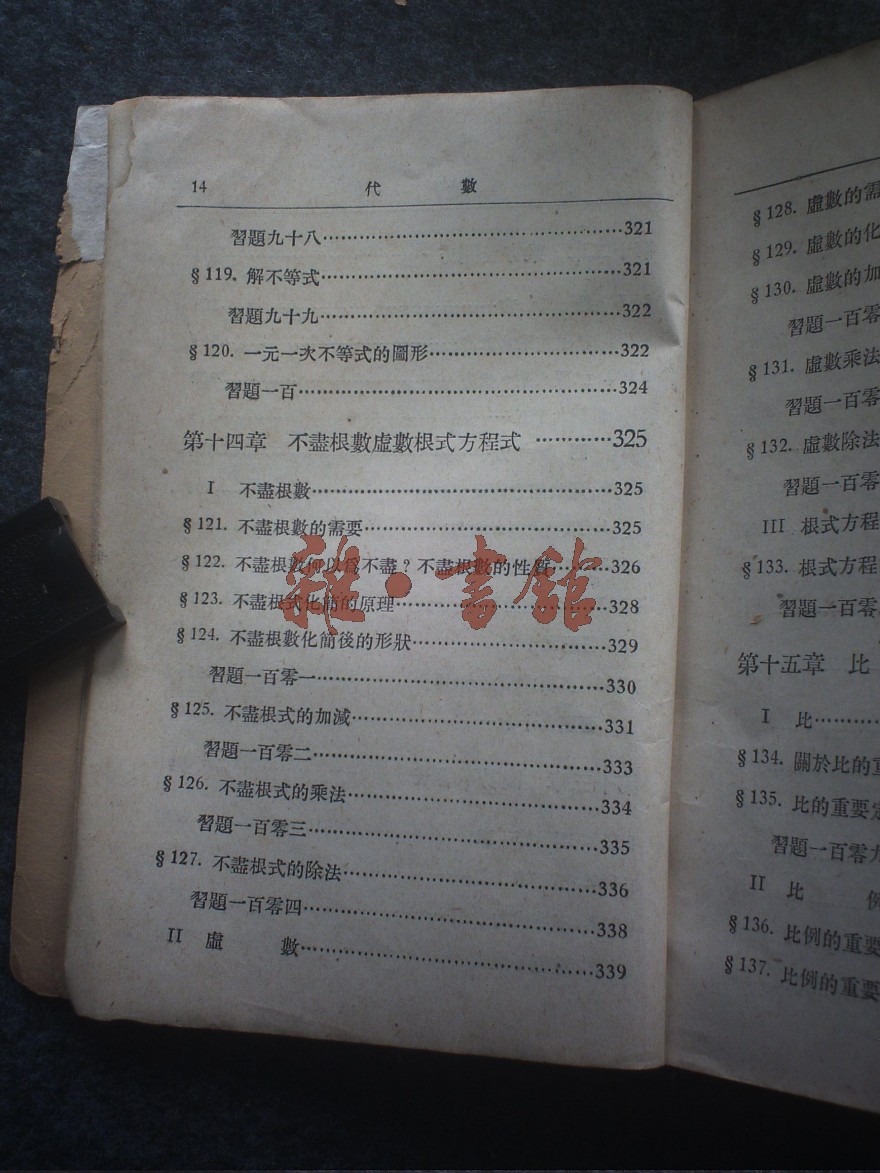 14 代 數
習題九十八……321
§119. 解不等式……321
習題九十九……322
§120. 一元一次不等式的圖形……322
習題一百……324
第十四章 不盡根數虛數根式方程式……325
I 不盡根數……325
§121. 不盡根數的需要……325
§122. 不盡根數何以爲不盡?不盡根數的性質……326
§123. 不盡根式化簡的原理……328
§124. 不盡根數化簡後的形狀……329
習題一百零一……330
§125. 不盡根式的加減……331
習題一百零二……333
§126. 不盡根式的乘法……334
習題一百零三……335
§127. 不盡根式的除法……336
習題一百零四……338
II 虛 數……339
雜·書館
§128. 虛數的需
§129. 虛數的化
§130. 虛數的加
習題一百零
§131. 虛數乘法
習題一百零
§132. 虛數除法
習題一百零
III 根式方程
§133. 根式方程
習題一百零
第十五章 比
I 比……
§134. 關於比的重
§135. 比的重要定
習題一百零九
II 比 例
§136. 比例的重要
§137. 比例的重要